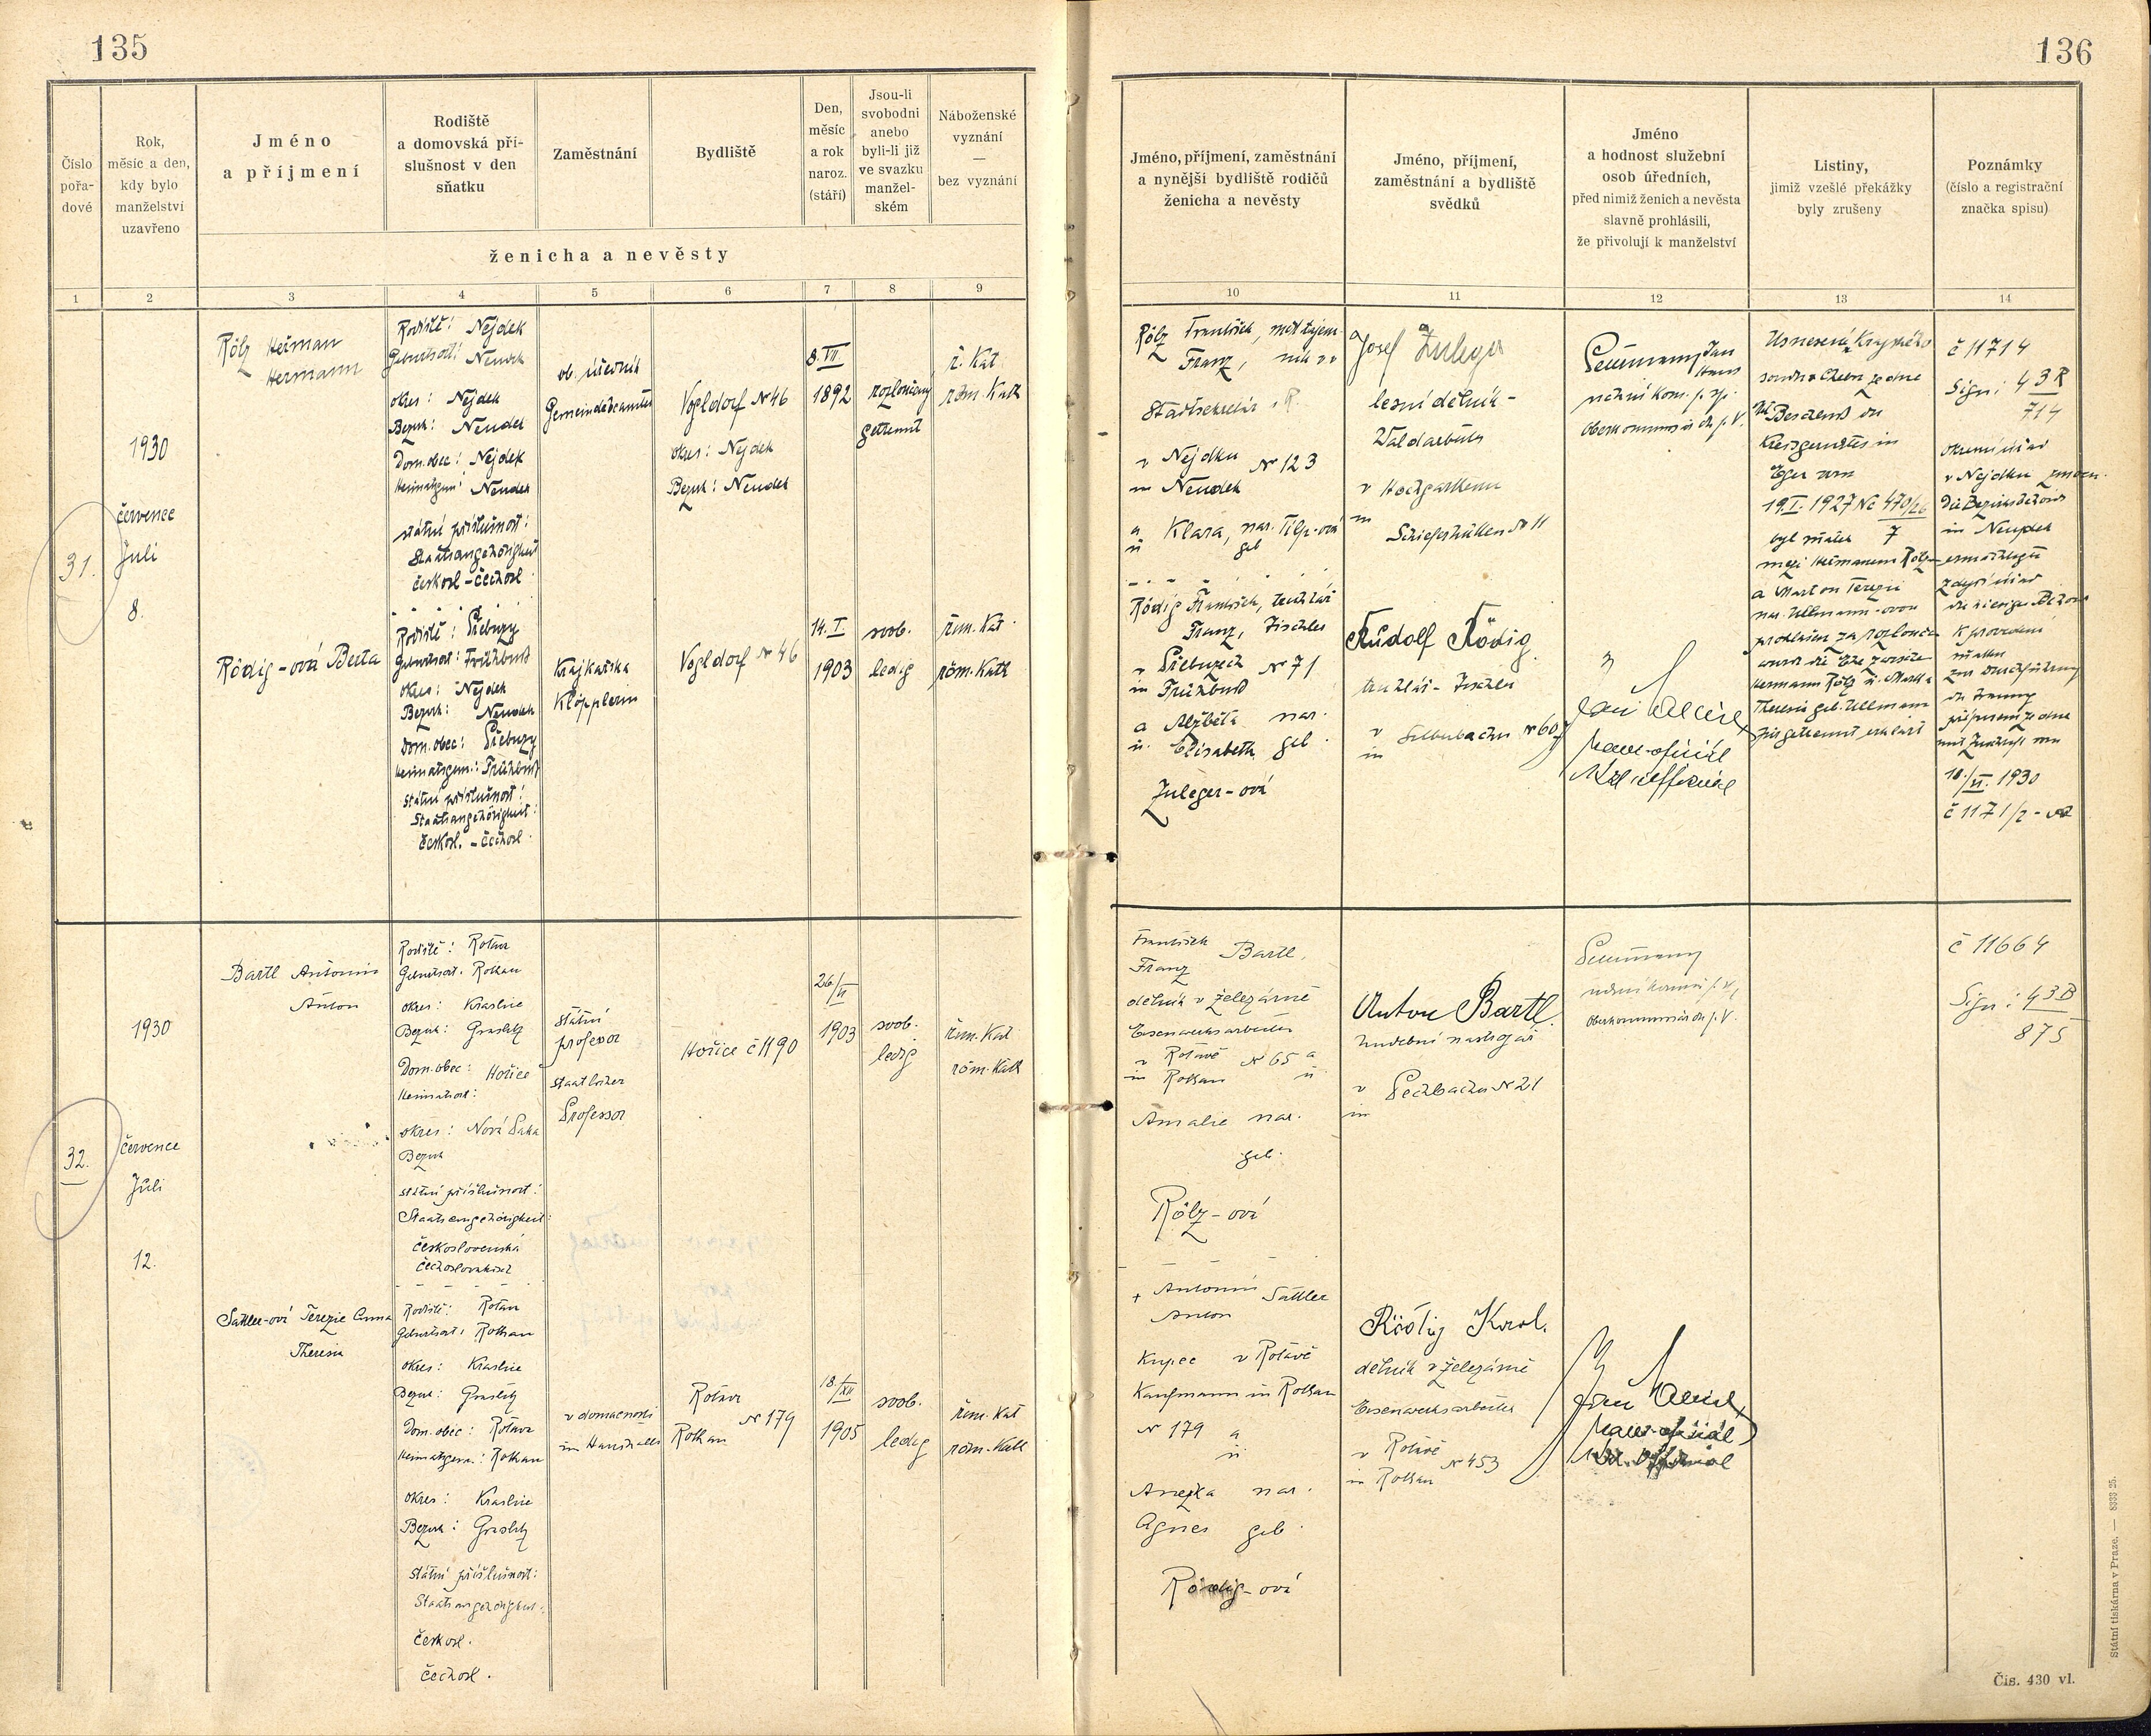 135
136
Číslo
pořa-
dové
Rok,
měsíc a den,
kdy bylo
manželství
uzavřeno
Jméno
a příjmení
Rodiště
a domovská pří-
slušnost v den
sňatku
Zaměstnání
Bydliště
Den,
měsíc
a rok
naroz.
(stáří)
Jsou-li
svobodni
anebo
byli-li již
ve svazku
manžel-
ském
Náboženské
vyznání
—
bez vyznání
ženicha a nevěsty
Jméno, příjmení, zaměstnání
a nynější bydliště rodičů
ženicha a nevěsty
Jméno, příjmení,
zaměstnání a bydliště
svědků
Jméno
a hodnost služební
osob úředních,
před nimiž ženich a nevěsta
slavně prohlásili,
že přivolují k manželství
Listiny,
jimiž vzešlé překážky
byly zrušeny
Poznámky
(číslo a registrační
značka spisu)
1 2 3 4 5 6 7 8 9
10 11 12 13 14
31.
1930
července
Juli
8.
Rölz Heřman
Hermann
Rodiště: Nejdek
Geburtsort: Neudek
okres: Nejdek
Bezirk: Neudek
Dom. obec: Nejdek
Heimatgem: Neudek
státní příslušnost:
Staatsangehörigkeit
českosl - čechosl.
ob. úředník
Gemeindebeamter
Vogldorf № 46
okres: Nejdek
Bezirk: Neudek
8. VII
1892
rozloučený
getrennt
ř. Kat
röm. Kath
Rödig-ová Berta
Rodiště: Přebuzy
Geburtsort: Frühbuß
okres: Nejdek
Bezirk: Neudek
Dom. obec: Přebuzy
Heimatgem.: Frühbuß
státní příslušnost:
Staatsangehörigkeit:
českosl. - čechosl.
Krajkařka
Klöpplerin
Vogldorf № 46
14. I.
1903
svob.
ledig
řím. Kat.
röm. Kath
Rölz František, měst tajem-
Franz, ník v v
Stadtsekretär i. R.
v Nejdku № 123
in Neudek
a Klara, nar. Tilp-ová
u geb
Rödig František, truhlář
Franz, Tischler
v Přebuzech № 71
in Frühbuß
a Alžběta nar.
u. Elisabeth geb.
Zuleger-ová
Josef Zuleger
lesní dělník -
Waldarbeiter
v Hochgarthenu
in
Schieferhütten № 11
Rudolf Rödig
truhlář - Tischler
v Silberbachu № 60
in
Jan
Hans
vrchní kom. p. sp.
Oberkommissär der p. V.
Usnesení Krajského
soudu v Chebu ze dne
mit Bescheid des
Kreisgerichtes in
Eger vom
19. I. 1927 Nc 470/26
7
byl sňatek
mezi Heřmanem Rölz
a Martou Terezii
nar. Ullmann-ovou
prohlášen za rozloučen
wurde die Ehe zwischen
Hermann Rölz u. Martha
Theresia geb. Ullmann
für getrennt erklärt
č 11714
Sign: 43 R
714
okresní úřad
v Nejdku zmocn.
Die Bezirksbehörde
in Neudek
ermächtigte
zdejší úřad
die hiesige Behörde
k provedení
sňatku
zur Durchführung
der Trauung
přípisem ze dne
mit Zuschrift vom
10./VI. 1930
32.
1930
července
Juli
12.
Bartl Antonín
Anton
Rodiště: Rotava
Geburtsort: Rothau
okres: Kraslice
Bezirk: Graslitz
Dom. obec: Hořice
Heimatsort:
okres: Nová Paka
Bezirk
státní příslušnost:
Staatsangehörigkeit:
československá
čechoslovakisch
státní
profesor
staatlicher
Professor
Hořice č 1190
26/VI
1903
svob.
ledig
řím. Kat
röm. Kath
Sattler-ová Terezie Anna
Theresia
Rodiště: Rotava
Geburtsort: Rothau
okres: Kraslice
Bezirk: Graslitz
Dom. obec: Rotava
Heimatgem.: Rothau
okres: Kraslice
Bezirk: Graslitz
státní příslušnost:
Staatsangehörigkeit:
českosl.
čechosl.
v domácnosti
im Haushalte
Rotava
Rothau № 179
18./XII
1905
svob.
ledig
řím. Kat
röm. Kath
František Bartl,
Franz
dělník v železárně
Eisenwerksarbeiter
v Rotavě № 65 a
in Rothau u.
Amalie nar.
geb.
Rölz-ová
+ Antonín Sattler
Anton
Kupec v Rotavě
Kaufmann in Rothau
№ 179 a
u
Anežka nar.
Agnes geb.
Rödig-ová
Anton Bartl
hudební nástrojař
v Pechbachu № 21
in
Rödig Karl.
dělník v železárně
Eisenwerksarbeiter
v Rotavě
in Rothau № 453
Oberkommissär der p. V.
č 11664
Sign: 43 B
875
Státní tiskárna v Praze. — 8333 25.
Čís. 430 vl.